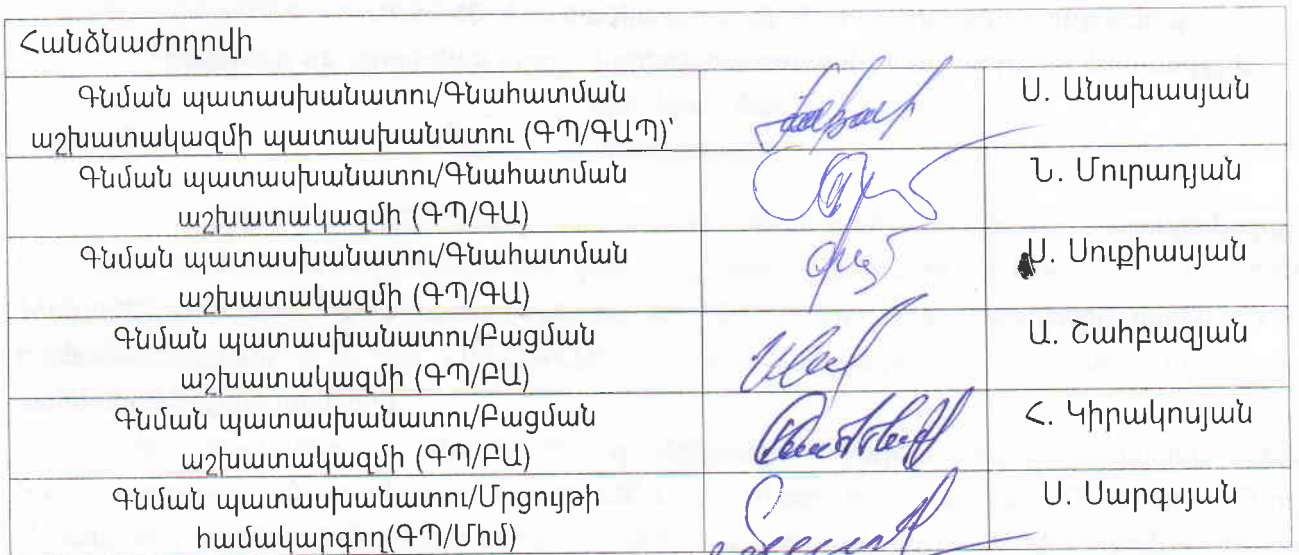 Հանձնաժողովի
Գնման պատասխանատու/Գնահատման
աշխատակազմի պատասխանատու (ԳՊ/ԳԱՊ)՝
Ս. Անախասյան
Գնման պատասխանատու/Գնահատման
աշխատակազմի (ԳՊ/ԳԱ)
Ն. Մուրադյան
Գնման պատասխանատու/Գնահատման
աշխատակազմի (ԳՊ/ԳԱ)
Ս. Սուքիասյան
Գնման պատասխանատու/Բացման
աշխատակազմի (ԳՊ/ԲԱ)
Ա. Շահբազյան
Գնման պատասխանատու/Բացման
աշխատակազմի (ԳՊ/ԲԱ)
Հ. Կիրակոսյան
Գնման պատասխանատու/Մրցույթի
համակարգող(ԳՊ/Մհմ)
Ս. Սարգսյան